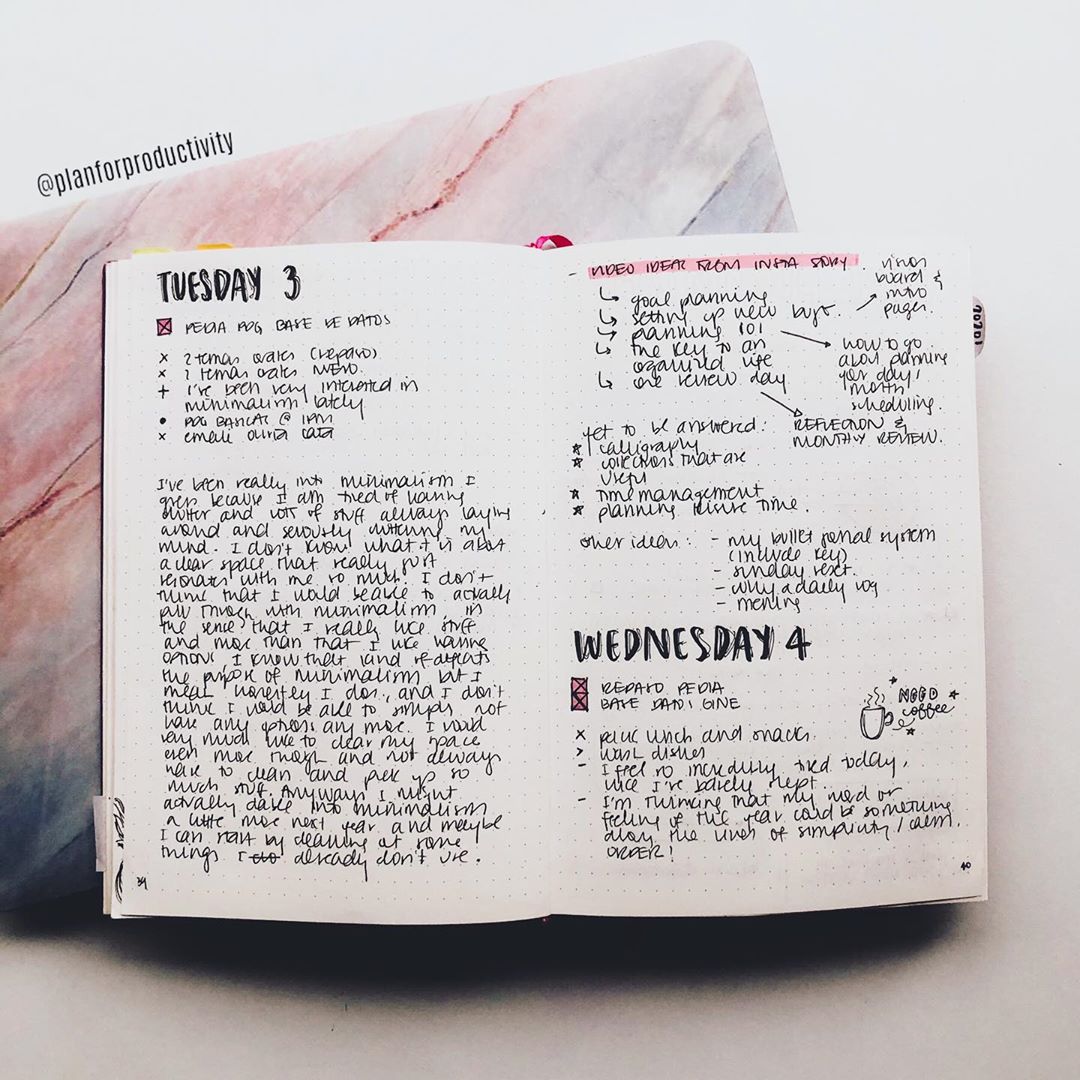 @planforproductivity
TUESDAY 3
PEDIA PDG BASE DE DATOS
x 2 temas orales (repaso)
x 2 temas orales NUEVO.
+ I've been very interested in
minimalism lately
• PDG BASICAS @ 1PM
x email Olivia data
I've been really into minimalism I
guess because I am tired of having
clutter and lots of stuff always laying
around and seriously cluttering my
mind. I don't know what it is about
a clear space that really just
resonates with me so much. I don't
think that I would be able to actually
pull through with minimalism in
the sense that I really like stuff
and more than that I like having
options. I know that kind of defeats
the purpose of minimalism but I
mean honestly I do, and I don't
think I would be able to simply not
have any options any more. I would
very much like to clear my space
even more though and not always
have to clean and pick up so
much stuff. Anyways I might
actually delve into minimalism
a little more next year and maybe
I can start by cleaning out some
things I already don't use.
39
- VIDEO IDEAS FROM INSTA STORY
vision
board &
intro
pages.
↳ goal planning
↳ setting up new bujo.
↳ planning 101
↳ the key to an
organized life
↳ one review day
how to go
about planning
your day,
month,
scheduling.
REFLECTION &
MONTHLY REVIEW.
yet to be answered:
★ calligraphy
★ collections that are
useful
★ time management
★ planning leisure time.
other ideas: - my bullet jornal system
(include key)
- sunday reset.
- why a daily log
- morning
WEDNESDAY 4
REPASO PEDIA
BASE DATOS GINE
NEED
coffee
x pack lunch and snacks.
> wash dishes
- I feel so incredibly tired today,
like I've barely slept.
- I'm thinking that my word or
feeling of this year could be something
along the lines of simplicity/calm.
ORDER!
40